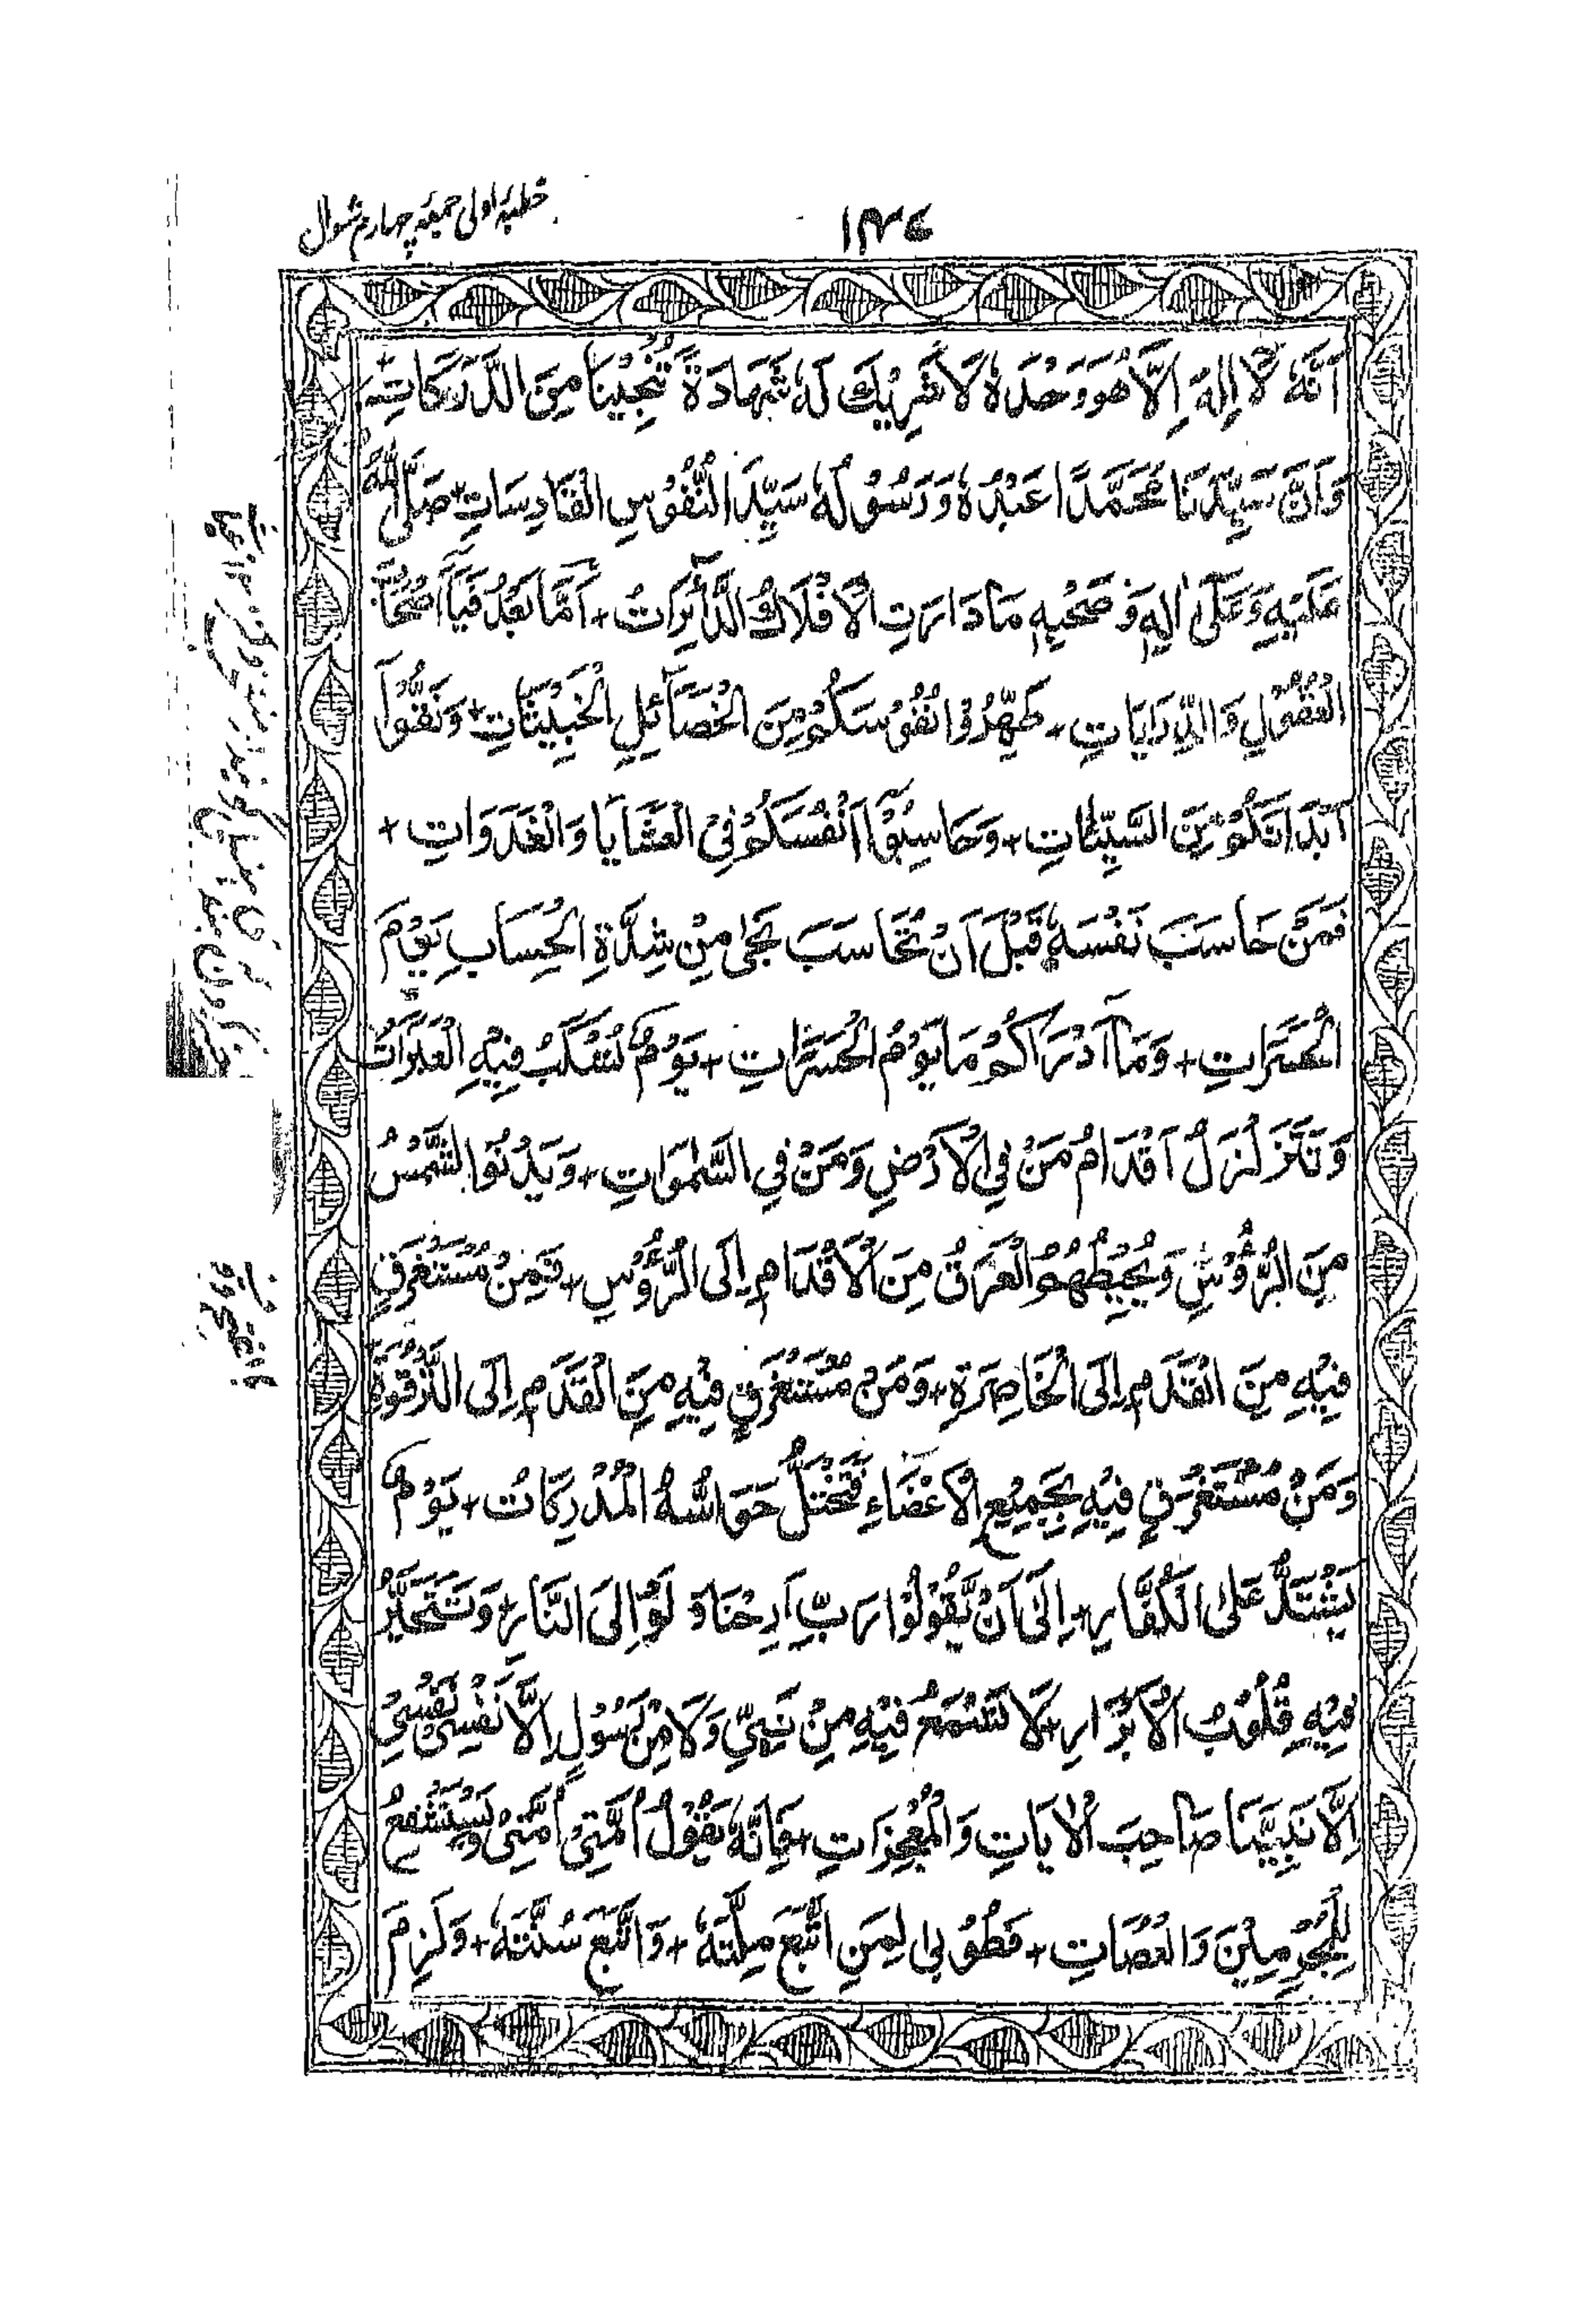 ۱۴۷
خطبۂ اولی جمعۂ چہارم شوال
اَنَّهٗ لَا اِلٰهَ اِلَّا هُوَ وَحْدَهٗ لَا شَرِيْكَ لَهٗ شَهَادَةً تُنْجِيْنَا مِنَ الدَّرَكَاتِ +
وَاَنَّ سَيِّدَنَا مُحَمَّدًا عَبْدُهٗ وَرَسُوْلُهٗ سَيِّدَ النُّفُوْسِ الْقَادِسَاتِ + صَلَّى اللّٰهُ
عَلَيْهِ وَعَلٰى اٰلِهٖ وَصَحْبِهٖ مَا دَارَتِ الْاَفْلَاكُ الدَّآئِرَاتُ + اَمَّا بَعْدُ فَيَآ اَصْحَابَ
الْعُقُوْلِ وَالدِّرَايَاتِ + طَهِّرُوْا نُفُوْسَكُمْ مِنَ الْخَصَآئِلِ الْخَبِيْثَاتِ + وَنَقُّوْآ
اَبْدَانَكُمْ مِنَ السَّيِّئَاتِ + وَحَاسِبُوْآ اَنْفُسَكُمْ فِي الْعَشَايَا وَالْغَدَوَاتِ +
فَمَنْ حَاسَبَ نَفْسَهٗ قَبْلَ اَنْ يُحَاسَبَ نَجٰى مِنْ شِدَّةِ الْحِسَابِ يَوْمَ
الْحَسَرَاتِ + وَمَآ اَدْرَاكُمْ مَا يَوْمُ الْحَسَرَاتِ + يَوْمٌ تُسْكَبُ فِيْهِ الْعَبَرَاتُ
وَتَتَزَلْزَلُ اَقْدَامُ مَنْ فِي الْاَرْضِ وَمَنْ فِي السَّمٰوَاتِ + وَيَدْنُوا الشَّمْسُ
مِنَ الرُّؤُسِ وَيُحِيْطُهُمُ الْعَرَقُ مِنَ الْاَقْدَامِ اِلَى الرُّؤُسِ + فَمِنْ مُسْتَغْرِقٍ
فِيْهِ مِنَ الْقَدَمِ اِلَى الْخَاصِرَةِ + وَمِنْ مُسْتَغْرِقٍ فِيْهِ مِنَ الْقَدَمِ اِلَى التَّرْقُوَةِ
وَمِنْ مُسْتَغْرِقٍ فِيْهِ بِجَمِيْعِ الْاَعْضَاءِ فَتَخْتَلُّ حَوَاسُّهُ الْمُدْرِكَاتُ + يَوْمٌ
يَشْتَدُّ عَلَى الْكُفَّارِ + اِلٰى اَنْ يَّقُوْلُوْا رَبِّ اَرِحْنَا وَلَوْ اِلَى النَّارِ + وَتَتَحَيَّرُ
فِيْهِ قُلُوْبُ الْاَبْرَارِ + لَا تَسْمَعُ فِيْهِ مِنْ نَبِيٍّ وَلَا مِنْ رَسُوْلٍ اِلَّا نَفْسِيْ نَفْسِيْ
اِلَّا نَبِيَّنَا صَاحِبَ الْاٰيَاتِ وَالْمُعْجِزَاتِ + فَاِنَّهٗ يَقُوْلُ اُمَّتِيْ اُمَّتِيْ وَيَسْتَشْفِعُ
لِلْمُجْرِمِيْنَ وَالْعُصَاتِ + فَطُوْبٰى لِمَنِ اتَّبَعَ مِلَّتَهٗ + وَاتَّبَعَ سُنَّتَهٗ + وَلَزِمَ